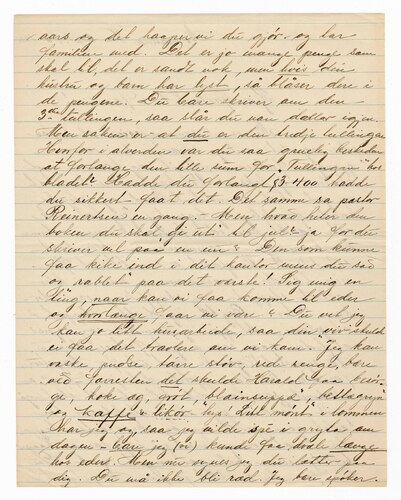 aars og det haaper vi du gjør - og har
familien med. Det er jo mange penge som
skal til, det er sandt nok, men hvis din
hustru og barn har lyst, så blåser dere i
de pengene. Du bare skriver om den
3die tullingen, saa står du van dollar igjen
Men saken er at du er den tredje tullingen
Hvorfor i alverden var du saa gruelig beskeden
at forlange den lille sum for "Tullingen" hos
bladet? Hadde du forlangt $3-400 hadde
du sikkert faat det. Det samme sa pastor
Reinertsen en gang. - Men hvad heter den
boken du skal gi ut til jul? ja for du
skriver vel paa en nu? Den som kunne
faa kike ind i dit kontor mens du såd
og "rablet" paa det værste! Sig mig en
ting, naar kan vi faa komme til eder
og hvorlænge faar vi være? Du vet jeg
kan jo litt husarbeide, saa din viv skulde
ei faa det travlere om vi kom. Jeg kan
vaske, pudse, tørre støv, rede senge, bare
ved forresten det skulde Harald faa besørge,
koke sog, grøt,
og kaffe
har jeg og saa jeg vilde
dagen - bare jeg (vi) kunde faa dvæle længe
hos eder. Men nu synes jeg du latter paa
dig. Du må ikke bli ræd. Jeg bare spøker.